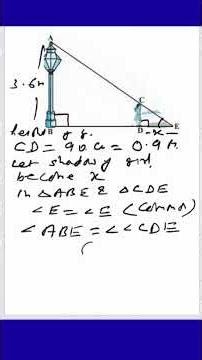 A
3.6m
C
B
D
x
E
CD = 90 cm = 0.9 m
Let shadow of girl
become x
in △ABE & △CDE
∠E = ∠E (Common)
∠ABE = ∠∠CDE
(